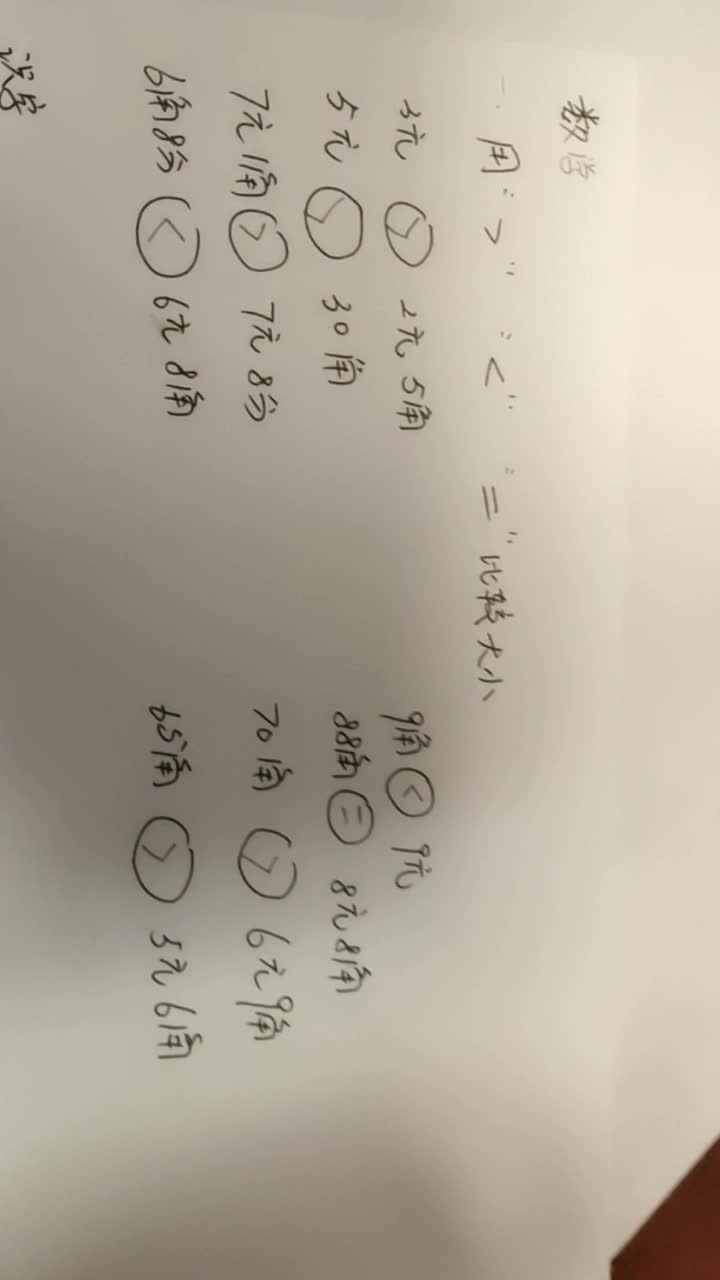 数学
一. 用">" "<" "="比较大小
3元 > 2元5角 9角 < 9元
5元 > 30角 88角 = 8元8角
7元1角 > 7元8分 70角 > 6元9角
6角8分 < 6元8角 65角 > 5元6角
识字